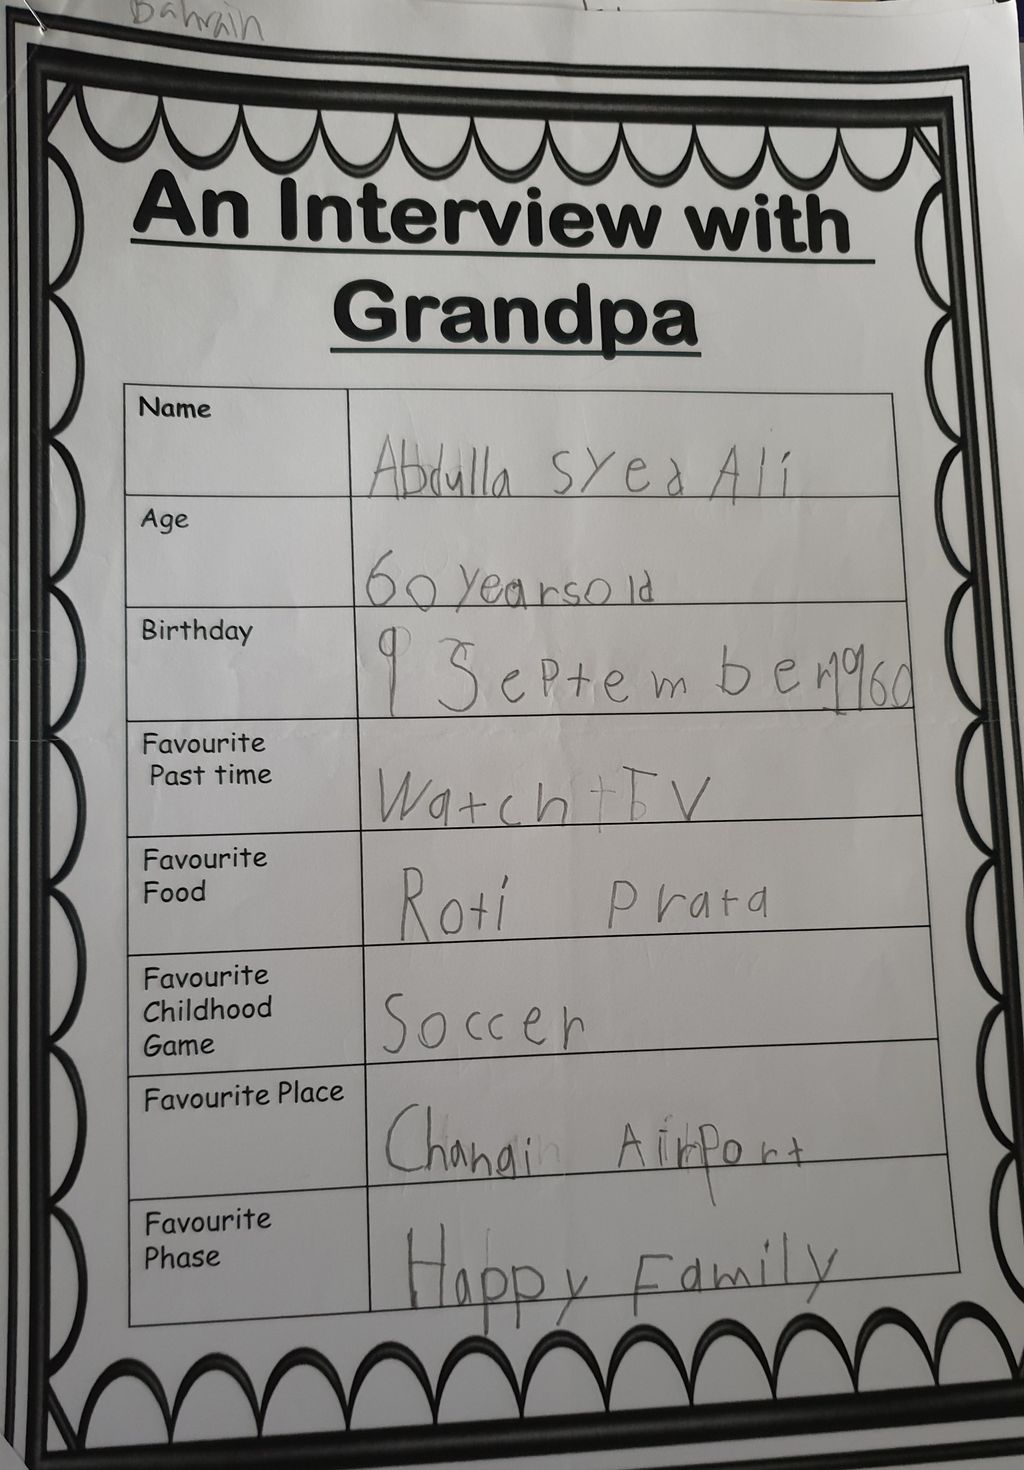 Bahrain
An Interview with
Grandpa
Name
Abdulla Syed Ali
Age
60 years old
Birthday
9 September 1960
Favourite
Past time
Watch TV
Favourite
Food
Roti Prata
Favourite
Childhood
Game
Soccer
Favourite Place
Changi Airport
Favourite
Phase
Happy Family